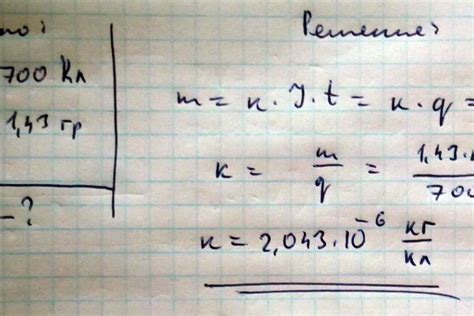 но:
700 Кл
1,43 гр
– ?
Решение:
m = к · I · t = к · q =
к = m/q = 1,43 ·/700
к = 2,043 · 10⁻⁶ кг/кл